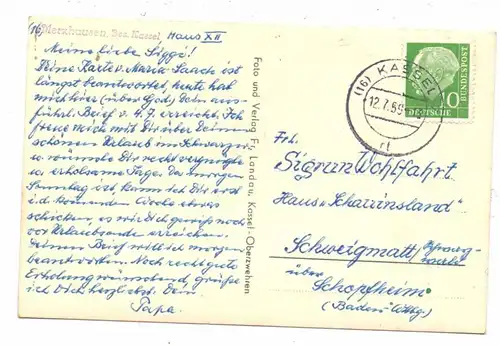 (16) Merxhausen, Bez. Kassel, Haus XII
Meine liebe Sigge!
Deine Karte v. Maria Laach ist
längst beantwortet, heute hat
mich hier (über Gods) Dein aus-
führl. Brief v. 4.7. erreicht. Ich
freue mich mit Dir über Deinen
schönen Urlaub im Schwarzw.
u. wünsche Dir recht vergnügte
u. erholsame Tage. Da morgen
Sonntag ist kann ich Dir erst
i.d. kommenden Woche etwas
schicken, es wird Dich gewiß noch
vor Urlaubsende erreichen.
Deinen Brief will ich morgen
beantworten. Noch recht gute
Erholung wünschend, grüße
ich Dich herzlichst. Dein
Papa.
Foto und Verlag Fr. Landau, Kassel-Oberzwehren
(16) KASSEL
12.7.58
rl
10
DEUTSCHE
BUNDESPOST
Frl.
Sigrun Wohlfahrt
Haus "Schauinsland"
Schweigmatt/Schwarz-
walde
über
Schopfheim
(Baden-Wttbg.)